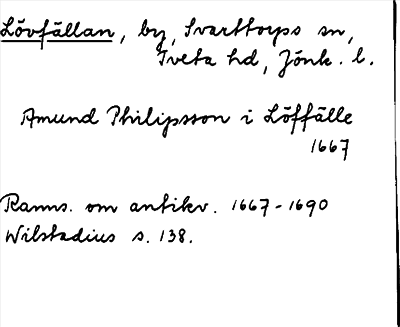 Lövfällan, by, Svarttorps sn,
Tveta hd, Jönk. l.
Amund Philipsson i Löffälle
1667
Ranns. om antikv. 1667-1690
Wilstadius s. 138.